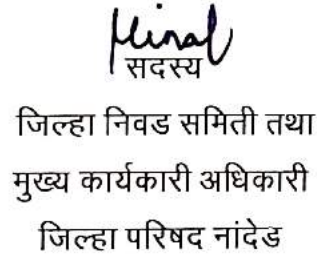 सदस्य
जिल्हा निवड समिती तथा
मुख्य कार्यकारी अधिकारी
जिल्हा परिषद नांदेड